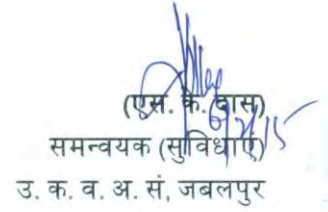 (एस. के. दास)
समन्वयक (सुविधाएं)
उ. क. व. अ. सं, जबलपुर